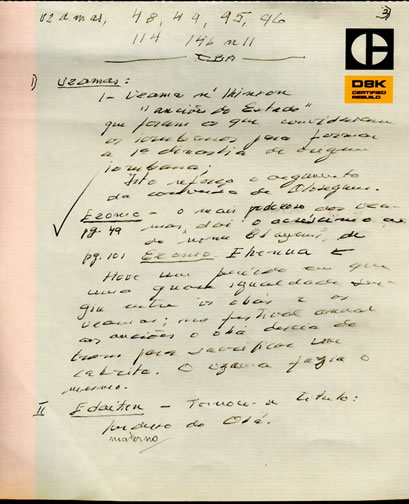 uzamas, 48, 44, 95, 96 3)
114 146 n 11
CBA
DBK
CERTIFIED
REBUILD
I) Uzamas:
1- Uzama n' Ihinron
"anciões do Estado"
que foram os que convidaram
os iorubanos para formar
a 1ª dinastia de origem
iorubana;
Isto reforça o argumento
da
Ezomo - o mais poderoso dos uza-
pg. 49 mas, daí o acréscimo
do nome
pg. 101 Ezomo Ehenua
Houve um período em que
uma quase igualdade
entre os obás e os
uzamas; no festival anual
os anciões o obá descia do
trono para sacrificar um
cabrito. O uzama fazia o
mesmo.
II Edaiken - Tornou-se título:
herdeiro do Obá.
materno